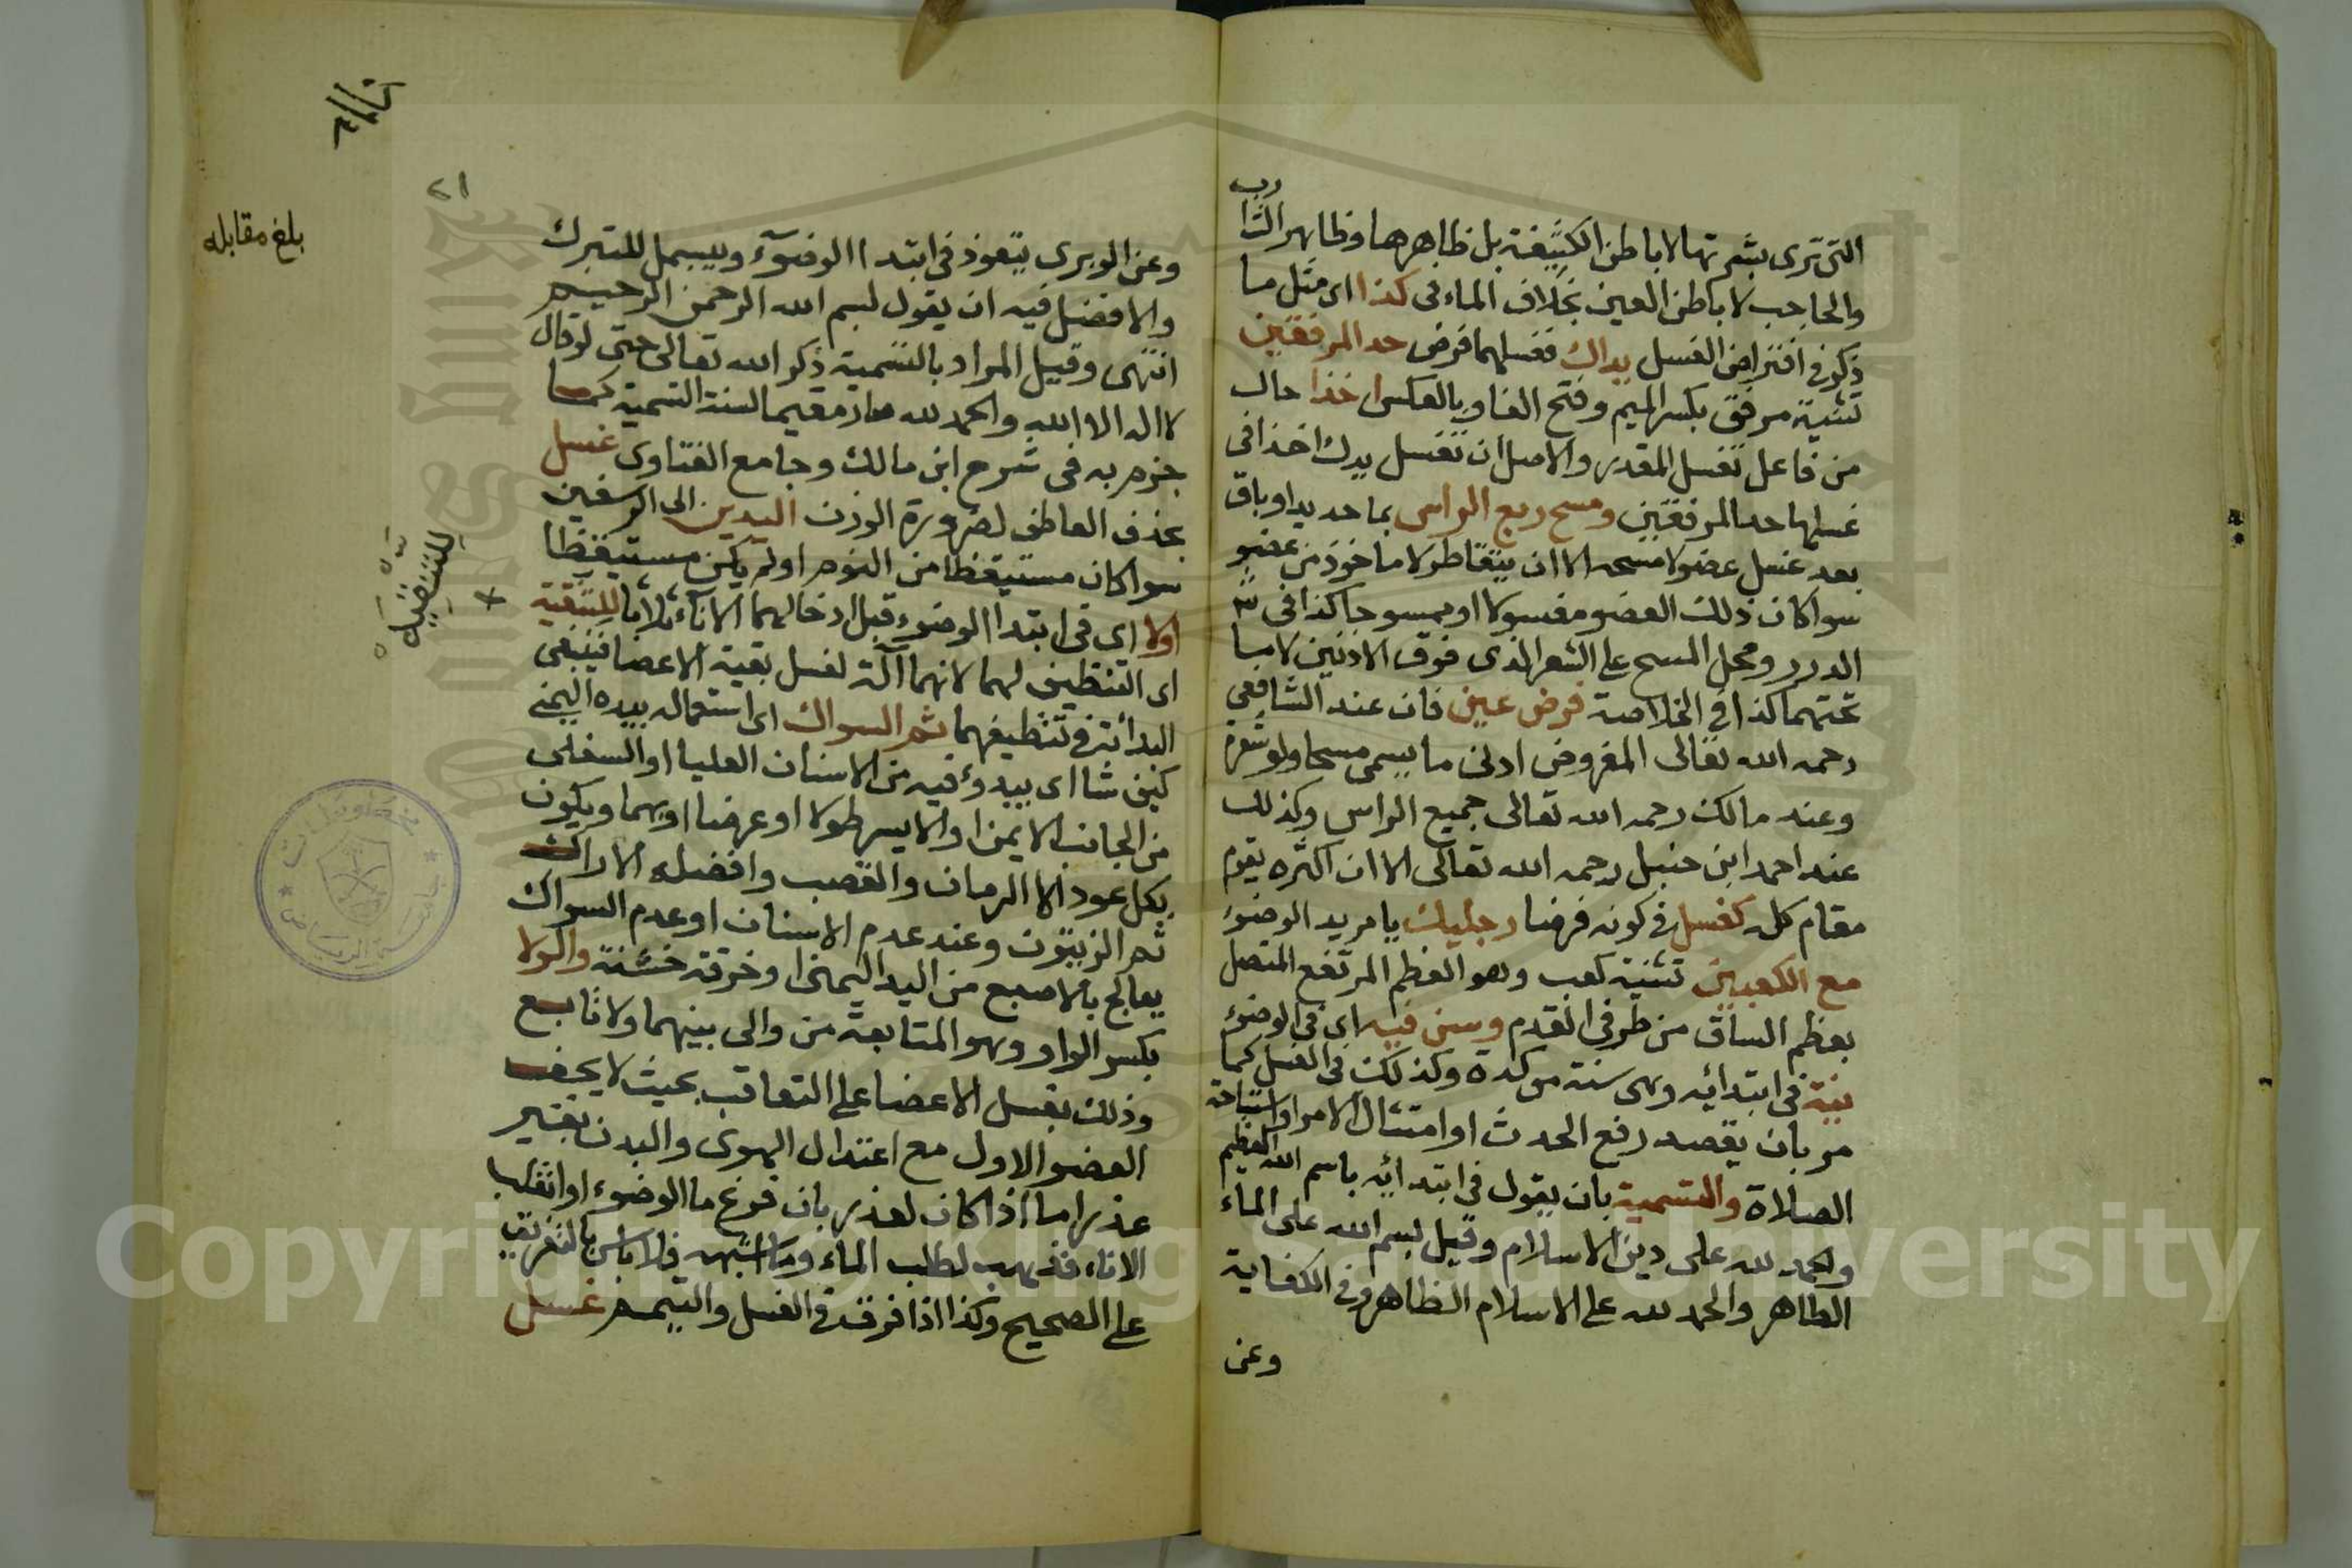 التى ترى بشرتها لا باطن الكثيفة بل ظاهرها وظاهر الشارب
والحاجب لا باطن العين بخلاف الماء فى كذا اى مثل ما
ذكر فى افتراض الغسل يداك فغسلهما فرض حد المرفقين
تثنية مرفق بكسر الميم وفتح الفا وبالعكس اخذا حال
من فاعل تغسل المقدر والاصل ان تغسل يدك اخذا فى
غسلهما حد المرفقين ومسح ربع الراس بما حديد او باق
بعد غسل عضو لا مسحه الا ان يتقاطر لا ماخوذ من عضو
سوا كان ذلك العضو مغسولا او ممسوحا كذا فى
الدرر ومحل المسح على الشعر الذى فوق الاذنين لا ما
تحتهما كذا فى الخلاصة فرض عين فان عند الشافعى
رحمه الله تعالى المفروض ادنى ما يسمى مسحا ولو شعرة
وعند مالك رحمه الله تعالى جميع الراس وكذلك
عند احمد ابن حنبل رحمه الله تعالى الا ان اكثره يقوم
مقام كله كغسل فى كونه فرضا رجليك يا مريد الوضوء
مع الكعبين تثنية كعب وهو العظم المرتفع المتصل
بعظم الساق من طرفى القدم وسن فيه اى فى الوضوء
نية فى ابتدائه وهى سنة موكدة وكذلك فى الغسل كما
مر بان يقصد رفع الحدث او امتثال الامر او استباحة
الصلاة والتسمية بان يقول فى ابتدائه باسم الله العظيم
والحمد لله على دين الاسلام وقيل بسم الله على الماء
الطاهر والحمد لله على الاسلام الظاهر وفى الكفاية
وعن
٢١
بلغ مقابله
وعن الوبرى يتعوذ فى ابتدا الوضوء ويبسمل للتبرك
والافضل فيه ان يقول بسم الله الرحمن الرحيم
انتهى وقيل المراد بالتسمية ذكر الله تعالى حتى لو قال
لا اله الا الله والحمد لله صار مقيما لسنة التسمية كما
جزم به فى شرح ابن مالك وجامع الفتاوى غسل
بحذف العاطف لضرورة الوزن اليدين الى الرسغين
سوا كان مستيقظا من النوم او لم يكن مستيقظا
اولا اى فى ابتدا الوضوء قبل ادخالهما الاناء ثلاثا للتنقية
اى التنظيف لهما لانهما آلة لغسل بقية الاعضا فينبغى
البدائة فى تنظيفهما ثم السواك اى استعماله بيده اليمنى
كيف شا اى يبدؤ فيه من الاسنان العليا او السفلى
من الجانب الايمن او الايسر طولا او عرضا او بهما ويكون
بكل عود الا الرمان والقصب وافضله الاراك
ثم الزيتون وعند عدم الاسنان او عدم السواك
يعالج بالاصبع من اليد اليمنى او خرقة خشنة والولا
بكسر الواو وهو المتابعة من والى بينهما ولا تابع
وذلك بغسل الاعضا على التعاقب بحيث لا يجف
العضو الاول مع اعتدال الهوى والبدن بغير
عذر اما اذا كان لعذر بان فرغ ما الوضوء او انقلب
الاناء فذهب لطلب الماء وما اشبهه فلا باس بالتفريق
على الصحيح وكذا اذا فرق فى الغسل والتيمم غسل
Copyright © King Saud University